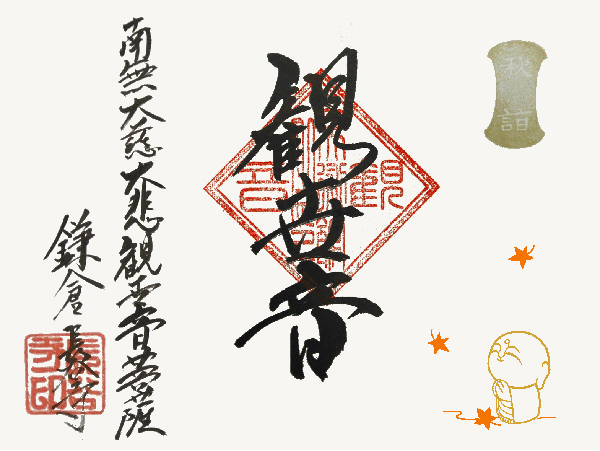 秋詣
観世音
南無大慈大悲観世音菩薩
鎌倉長壽寺